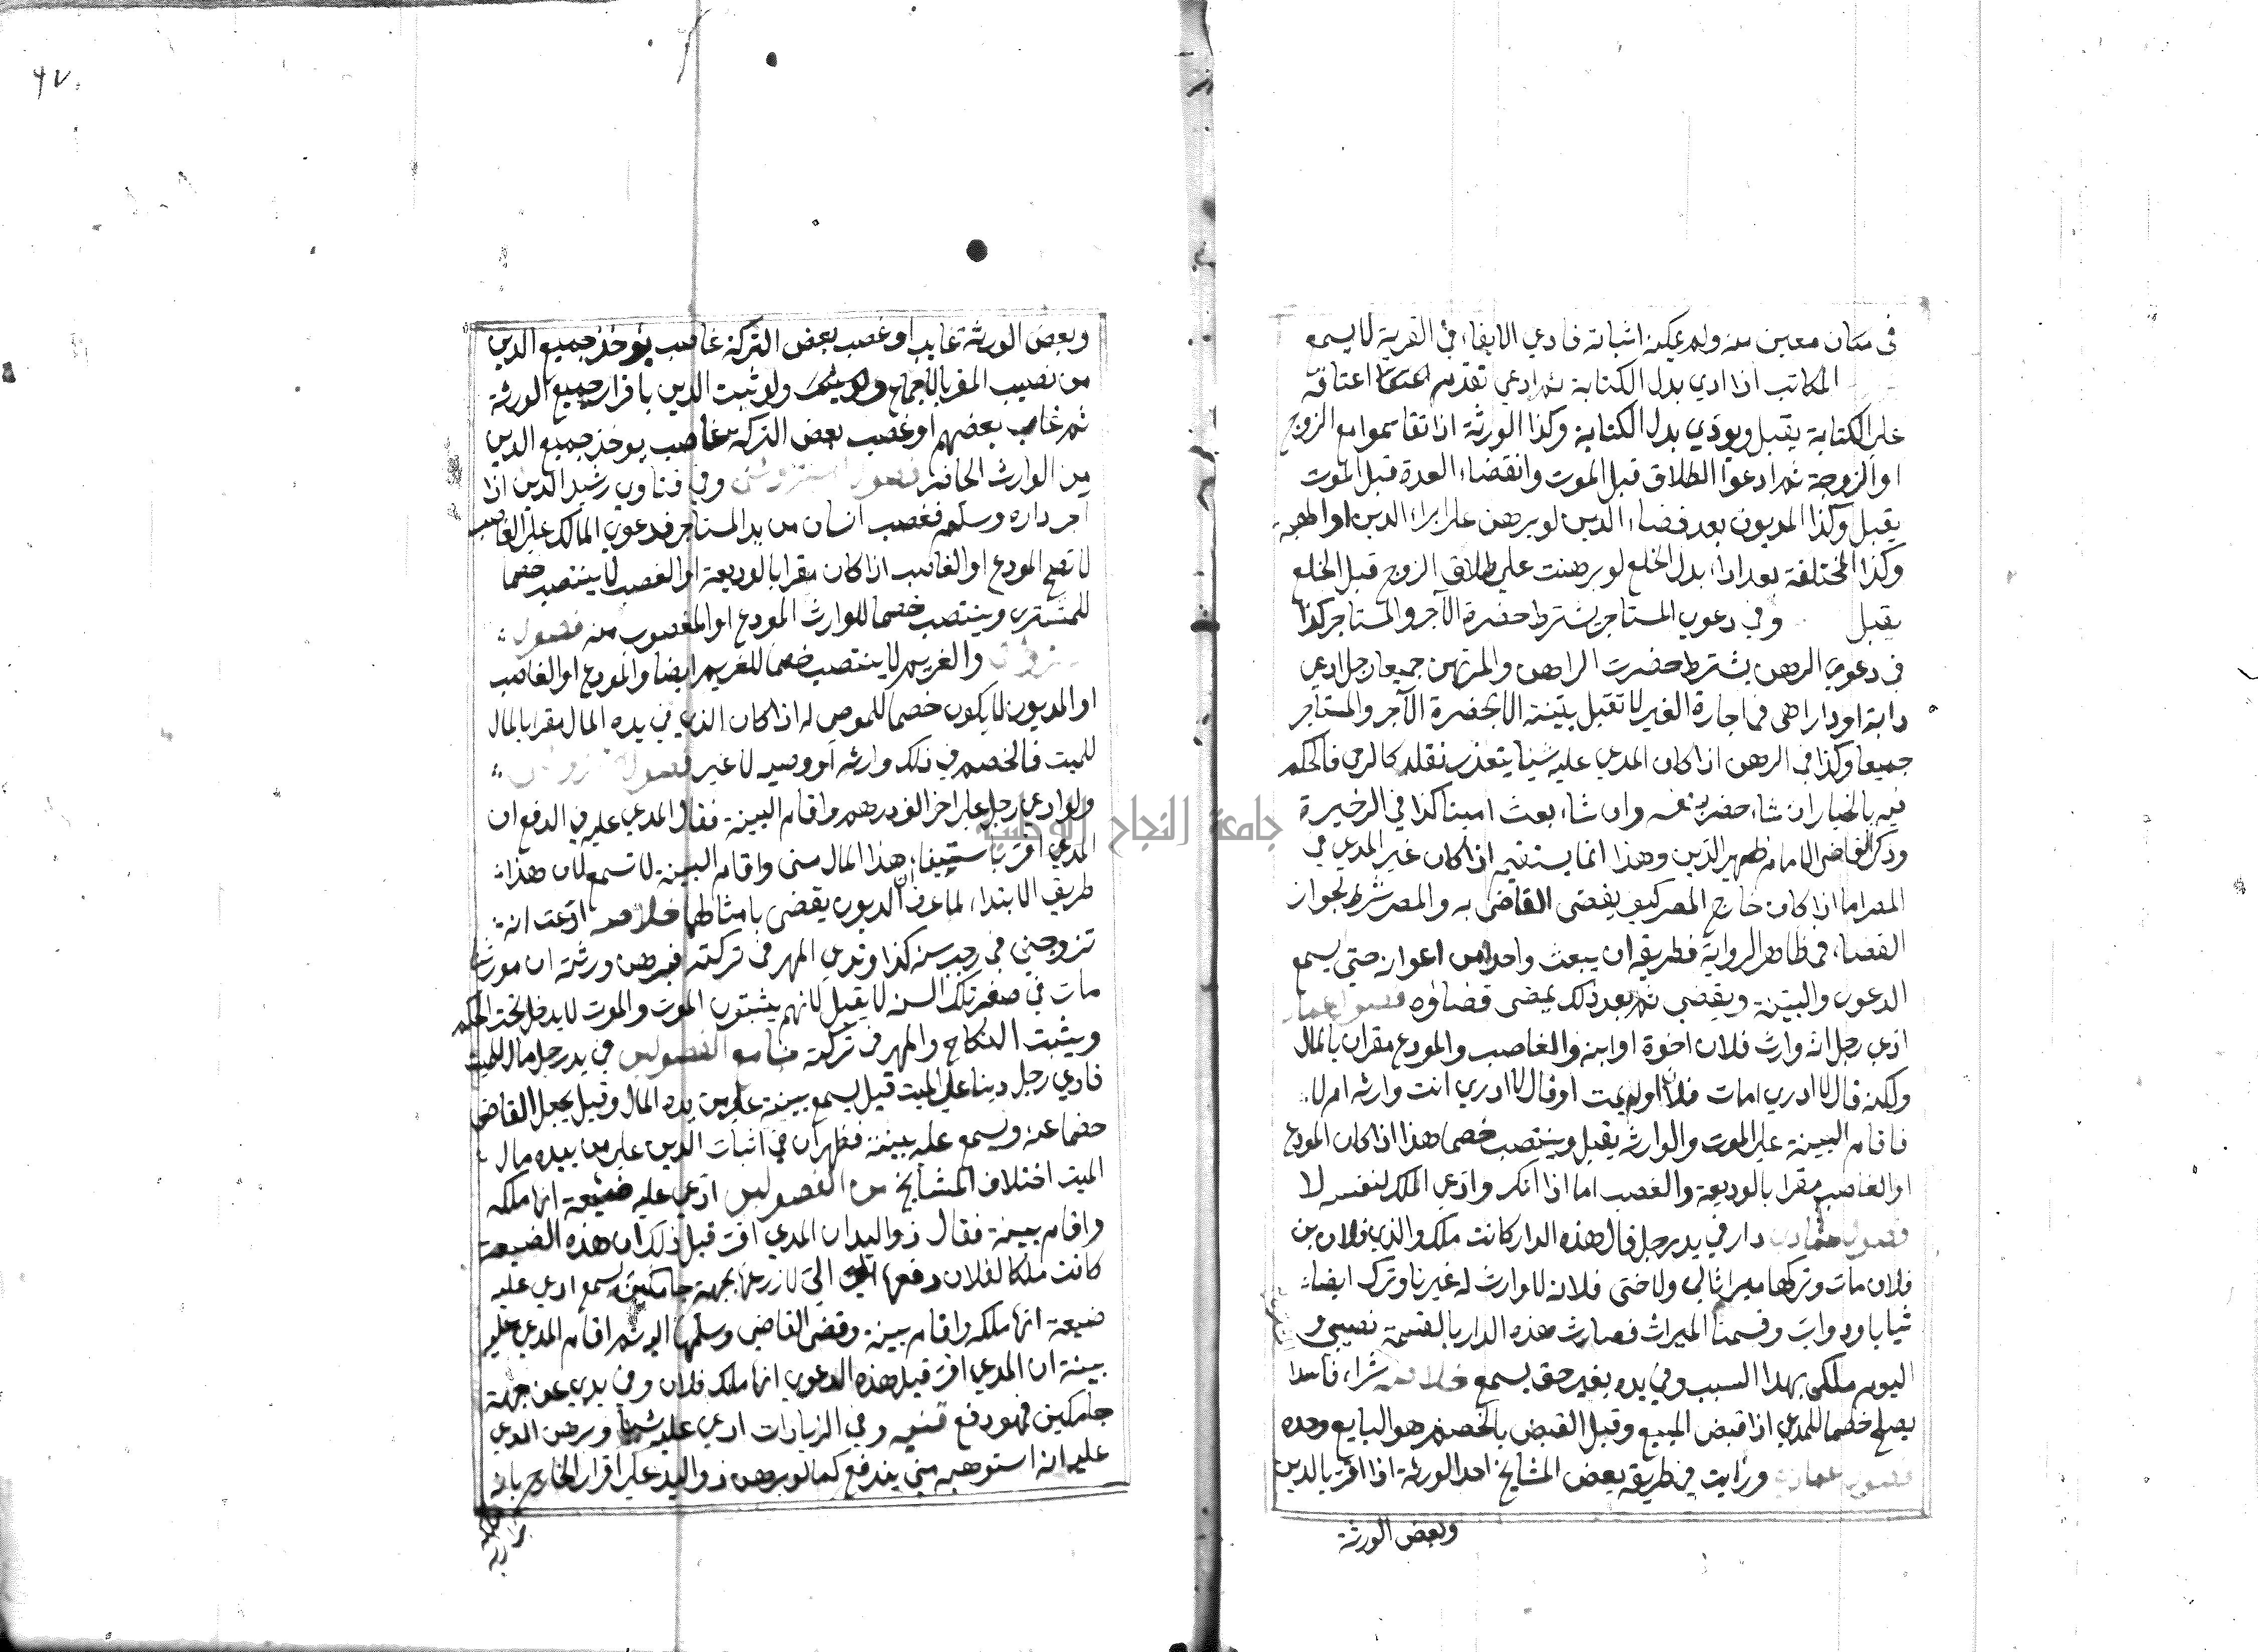 في مكان معين منه ولم يمكنه اثباته فادعي الايفاء في القرية لا يسمع
المكاتب اذا ادي بدل الكتابة ثم ادعي تقديم اعتاقه
على الكتابة يقبل ويؤدي بدل الكتابة وكذا الورثة اذا تقاسموا مع الزوج
او الزوجة ثم ادعوا الطلاق قبل الموت وانقضاء العدة قبل الموت
يقبل وكذا المديون بعد قضاء الدين لو برهن على ابراء الدين
وكذا المختلعة بعد اداء بدل الخلع لو برهنت علي طلاق الزوج قبل الخلع
يقبل وفي دعوي المستاجر يشترط حضرة الآجر والمستاجر كذا
في دعوي الرهن يشترط حضرت الراهن والمرتهن جميعا رجل ادعي
دابة او دارا هي في اجارة الغير لا تقبل بينته الا بحضرة الآجر والمستأجر
جميعا وكذا في الرهن اذا كان المدعي عليه شيئا يتعذر نقله كالرحي فالحكم
فيه بالخيار ان شاء حضر بنفسه وان شاء بعث امينا كذا في الذخيرة
وذكر القاضي الامام ظهير الدين وهذا انما يستقيم اذا كان غير المدعي في
المصر اما اذا كان خارج المصر كيف يقضي القاضي به والمصر شرط لجواز
القضاء في ظاهر الرواية فطريقه ان يبعث واحدا من اعوانه حتي يسمع
الدعوى والبينة ويقضي ثم بعد ذلك يمضي قضاؤه فصول
ادعي رجل انه وارث فلان اخوة او ابنه والغاصب والمودع مقران بالمال
ولكنه قال لا ادري امات فلان او لم يمت او قال لا ادري انت وارثه ام لا
فاقام البينة على الموت والوارثة يقبل وينتصب خصما هذا اذا كان المودع
او الغاصب مقرا بالوديعة والغصب اما اذا انكر وادعي الملك لنفسه لا
فصول عمادي دار في يد رجل قال هذه الدار كانت ملك والدي فلان بن
فلان مات وتركها ميراثا لي ولاختي فلانه لا وارث له غيرنا وترك ايضا
ثيابا ودوابّ وقسمنا الميراث فصارت هذه الدار بالقسمة نصيبي و
اليوم ملكي بهذا السبب وفي يده بغير حق يسمع خلاصه شراء فاسدا
يصلح خصما للمدعي اذا قبض المبيع وقبل القبض بالخصم هو البايع وحده
فصول عمادي ورايت في طريقه بعض المشايخ احد الورثة اذا اقر بالدين
وبعض الورثة
٩٧
وبعض الورثة غايب او غصب بعض التركة غاصب يؤخذ جميع الدين
من نصيب المقر بالاجماع ولو ثبت الدين باقرار جميع الورثة
ثم غاب بعضهم او غصب بعض التركة غاصب يوخذ جميع الدين
من الوارث الحاضر فصول وفي فتاوي رشيد الدين اذا
آجر داره وسلم فغصب انسان من يد المستاجر فدعوي المالك على الغاصب
لا تصح المودع او الغاصب اذا كان مقرا بالوديعة او الغصب لا ينتصب خصما
للمشتري وينتصب خصما للوارث المودع او المغصوب منه فصول
والغريم لا ينتصب خصما للغريم ايضا والمودع او الغاصب
او المديون لا يكون خصما للموصى له اذا كان الذي في يده المال مقرا بالمال
للميت فالخصم في ذلك وارثه او وصيه لا غير فصول
ولو ادعي رجل على اخر الف درهم واقام البينة فقال المدعي عليه في الدفع ان
المدعي اقر باستيفاء هذا المال مني واقام البينة لا تسمع لان هذا
طريق الابتداء لما عرف ان الديون يقضي بامثالها خلاصه ادعت انه
تزوجني في رجب سنه كذا وتدعي المهر في تركته فبرهن ورثته ان مورثنا
مات في صفر تلك السنه لا يقبل لانهم يثبتون الموت والموت لا يدخل تحت الحكم
ويثبت النكاح والمهر في تركته جامع الفصولين في يد رجل مال للميت
فادعي رجل دينا على الميت قيل يسمع بينة على من بيده المال وقيل يجعل القاضي
خصما عنه ويسمع عليه بينة فظهر ان في اثبات الدين على من بيده مال
الميت اختلاف المشايخ من الفصولين ادعي عليه ضيعة انها ملكه
واقام بينة فقال ذو اليد ان المدعي اقر قبل ذلك ان هذه الضيعة
كانت ملكا لفلان دفعها الي لازرعها بجهة جامكيتي يسمع ادعي عليه
ضيعة انها ملكه واقام بينة وقضى القاضي وسلمها اليه ثم اقام المدعي عليه
بينة ان المدعي اقر قبل هذه الدعوى انها ملك فلان وفي يدي عن جهة
جامكيتي فهو دفع قنيه وفي الزيادات ادعي عليه شيئا وبرهن المدعي
عليه انه استوهبه مني يندفع كما لو برهن ذو اليد على اقرار الخارج بانه
ملكه
جامعة النجاح الوطنية